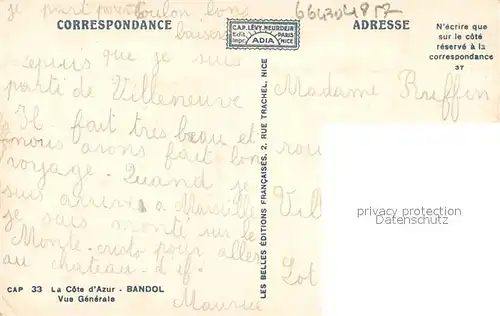 je part pour Toulon bons
baisers
CORRESPONDANCE
CAP. LÉVY NEURDEIN
Edit. Impr. ADIA PARIS NICE
ADRESSE
N'écrire que
sur le côté
réservé à la
correspondance
37
Depuis que je suis
parti de Villeneuve
Il fait tres beau et
nous avons fait bon
voyage. Quand je
suis arrivé a Marseille
je suis monté sur le
Monte-cristo pour aller
au chateau-d'if.
Maurice
LES BELLES ÉDITIONS FRANÇAISES, 2, RUE TRACHEL, NICE
Madame Ruffin
rou
Vill
Lot
privacy protection
VINTAGE-POSTCARDS
CAP 33 La Côte d'Azur - BANDOL
Vue Générale